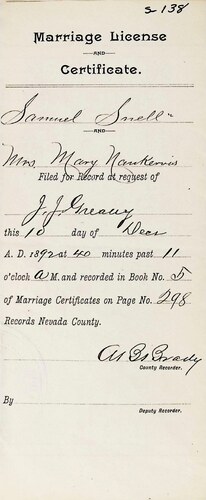 S 138
Marriage License
AND
Certificate.
Samuel Snell
AND
Mrs. Mary Nankervis
Filed for Record at request of
J. J. Greany
this 10 day of Decr
A. D. 1892 at 40 minutes past 11
o'clock A M. and recorded in Book No. 5
of Marriage Certificates on Page No. 298
Records Nevada County.
Brady
County Recorder.
By
Deputy Recorder.